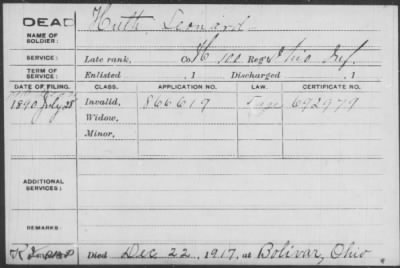 DEAD Huth Leonard
NAME OF SOLDIER:
SERVICE: Late rank, Co. H 100 Reg't Ohio Inf.
TERM OF SERVICE: Enlisted , 1 Discharged , 1
DATE OF FILING. CLASS. APPLICATION NO. LAW. CERTIFICATE NO.
1890 July 28 Invalid, 866619 692979
Widow,
Minor,
ADDITIONAL SERVICES:
REMARKS:
Died Dec 22, 1917, at Bolivar, Ohio